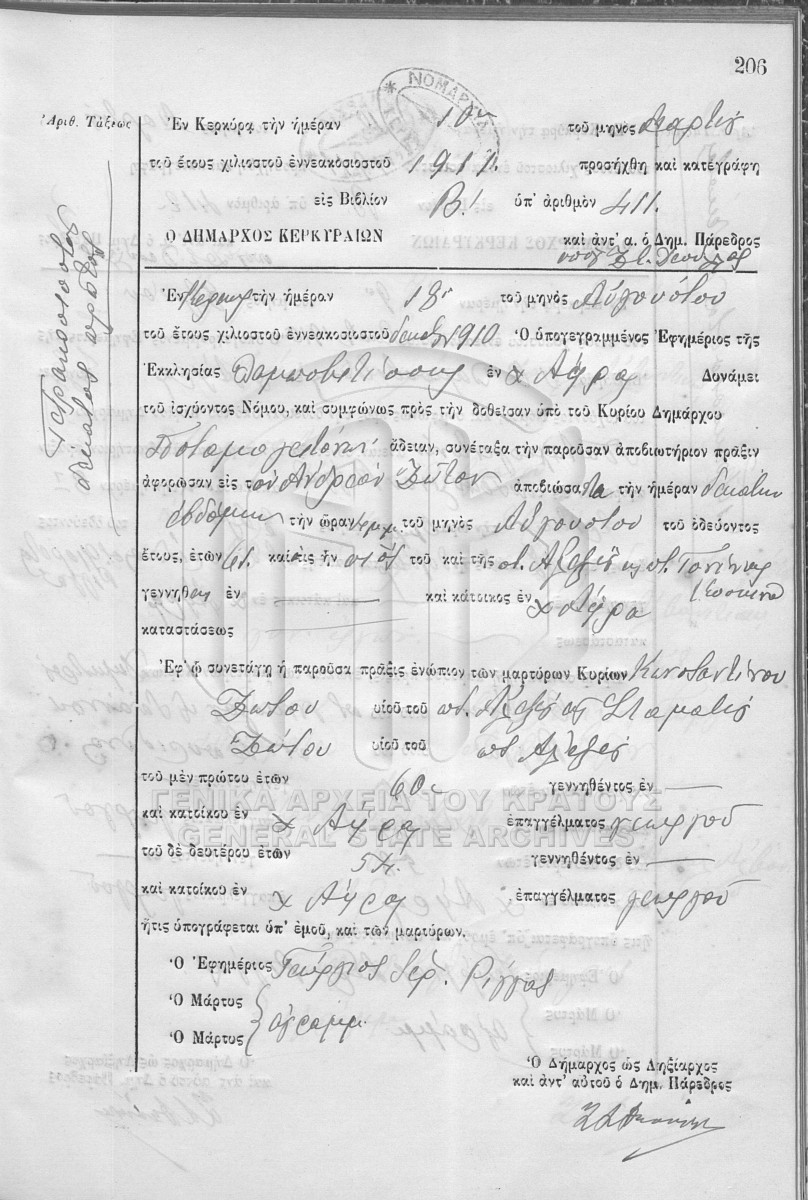 206
ΝΟΜΑΡΧ
Ἀριθ. Τάξεως
Τετρακοσιοστὸν δέκατον πρῶτον
Ἐν Κερκύρᾳ τὴν ἡμέραν 10ην τοῦ μηνὸς Μαρτίου
τοῦ ἔτους χιλιοστοῦ ἐννεακοσιοστοῦ 1911. προσήχθη καὶ κατεγράφη
εἰς Βιβλίον Β! ὑπ' ἀριθμὸν 411.
Ο ΔΗΜΑΡΧΟΣ ΚΕΡΚΥΡΑΙΩΝ καὶ ἀντ' α. ὁ Δημ. Πάρεδρος
Ἐν τὴν ἡμέραν 18 τοῦ μηνὸς Αὐγούστου
τοῦ ἔτους χιλιοστοῦ ἐννεακοσιοστοῦ δεκάτου 1910 Ὁ ὑπογεγραμμένος Ἐφημέριος τῆς
Ἐκκλησίας ἐν χ Ἄφρα Δυνάμει
τοῦ ἰσχύοντος Νόμου, καὶ συμφώνως πρὸς τὴν δοθεῖσαν ὑπὸ τοῦ Κυρίου Δημάρχου
Ποταμογειτόνων ἄδειαν, συνέταξα τὴν παροῦσαν ἀποβιωτήριον πρᾶξιν
ἀφορῶσαν εἰς τὸν Ἀνδρέαν Ζῶτον ἀποβιώσαντα τὴν ἡμέραν δεκάτην
ἑβδόμην τὴν ὥραν τοῦ μηνὸς Αὐγούστου τοῦ ὁδεύοντος
ἔτους, ἐτῶν 61. καὶ εἰς ἣν υἱὸς τοῦ καὶ τῆς π. Ἀλεξίου κ π.
γεννηθεὶς ἐν — καὶ κάτοικος ἐν χ Ἄφρα
καταστάσεως —
Ἐφ' ᾧ συνετάγη ἡ παροῦσα πρᾶξις ἐνώπιον τῶν μαρτύρων Κυρίων Κωνσταντίνου
Ζώτου υἱοῦ τοῦ ποτ. Ἀλεξίου κ Σταματίου
Ζώτου υἱοῦ τοῦ ποτ Ἀλεξίου
τοῦ μὲν πρώτου ἐτῶν 60 γεννηθέντος ἐν —
ΓΕΝΙΚΑ ΑΡΧΕΙΑ ΤΟΥ ΚΡΑΤΟΥΣ
καὶ κατοίκου ἐν χ Ἄφρα ἐπαγγέλματος γεωργοῦ
GENERAL STATE ARCHIVES
τοῦ δὲ δευτέρου ἐτῶν γεννηθέντος ἐν —
καὶ κατοίκου ἐν χ Ἄφρα ἐπαγγέλματος γεωργοῦ
ἥτις ὑπογράφεται ὑπ' ἐμοῦ, καὶ τῶν μαρτύρων.
Ὁ Ἐφημέριος Γεώργιος Ἱερ. Ρίγγας
Ὁ Μάρτυς
ἀγράμμ.
Ὁ Μάρτυς
Ὁ Δήμαρχος ὡς Ληξίαρχος
καὶ ἀντ' αὐτοῦ ὁ Δημ. Πάρεδρος